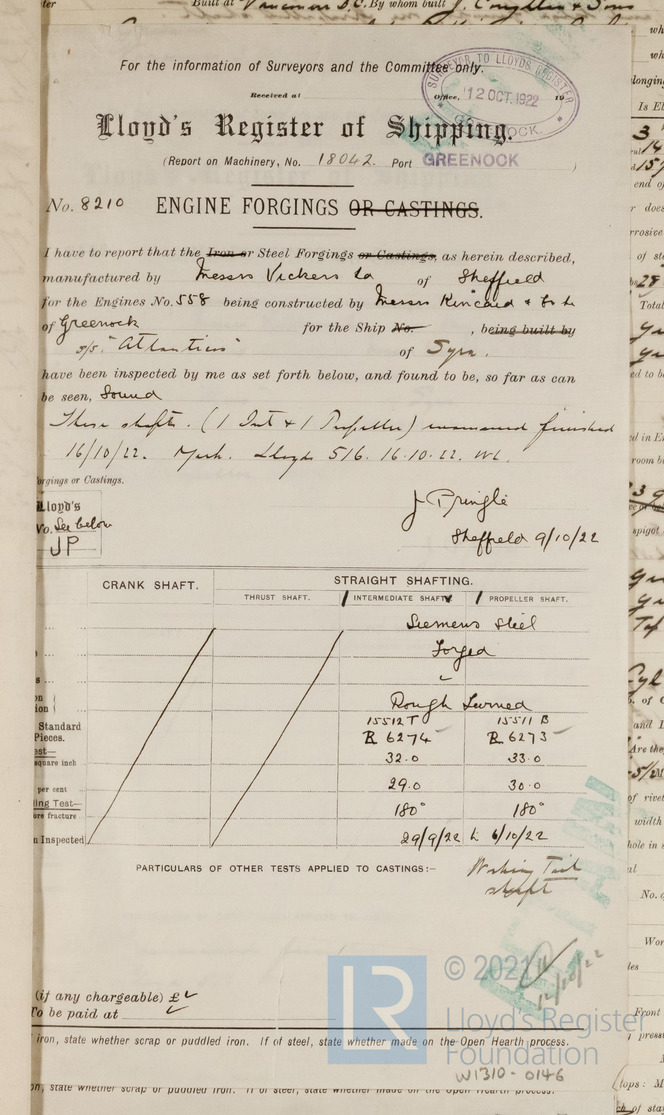 Built at Vancouver B.C. By whom built J. Coughlan & Sons
For the information of Surveyors and the Committee only.
Received at Office, 19
SURVEYOR TO LLOYDS REGISTER
12 OCT. 1922
GREENOCK
Lloyd's Register of Shipping.
(Report on Machinery, No. 18042. Port GREENOCK )
No. 8210 ENGINE FORGINGS OR CASTINGS.
I have to report that the Iron or Steel Forgings or Castings, as herein described,
manufactured by Messrs Vickers Ld of Sheffield
for the Engines No. 558 being constructed by Messrs Kincaid & Co Ld
of Greenock for the Ship No. , being built by
s/s "Atlanticos" of Syra.
have been inspected by me as set forth below, and found to be, so far as can
be seen, Sound
These shafts. (1 Int & 1 Propeller) examined finished
16/10/22. Mark. Lloyds 516. 16.10.22. WL.
orgings or Castings.
Lloyd's
No. See below
JP
J Pringle
Sheffield 9/10/22
CRANK SHAFT. STRAIGHT SHAFTING.
THRUST SHAFT. 1 INTERMEDIATE SHAFT 1 PROPELLER SHAFT.
Siemens Steel
Forged
Rough Turned
Standard 15512 T 15511 B
Pieces. R 6274 R 6273
est—
square inch 32.0 33.0
per cent 29.0 30.0
ing Test—
ure fracture 180° 180°
n Inspected 29/9/22 to 6/10/22
PARTICULARS OF OTHER TESTS APPLIED TO CASTINGS:— Working Tail
shaft
12/10/22
(if any chargeable) £
To be paid at
iron, state whether scrap or puddled iron. If of steel, state whether made on the Open Hearth process.
on, state whether scrap or puddled iron. If of steel, state whether made on the Open Hearth process.
LR
© 2021
Lloyd's Register
Foundation
W1310-0146